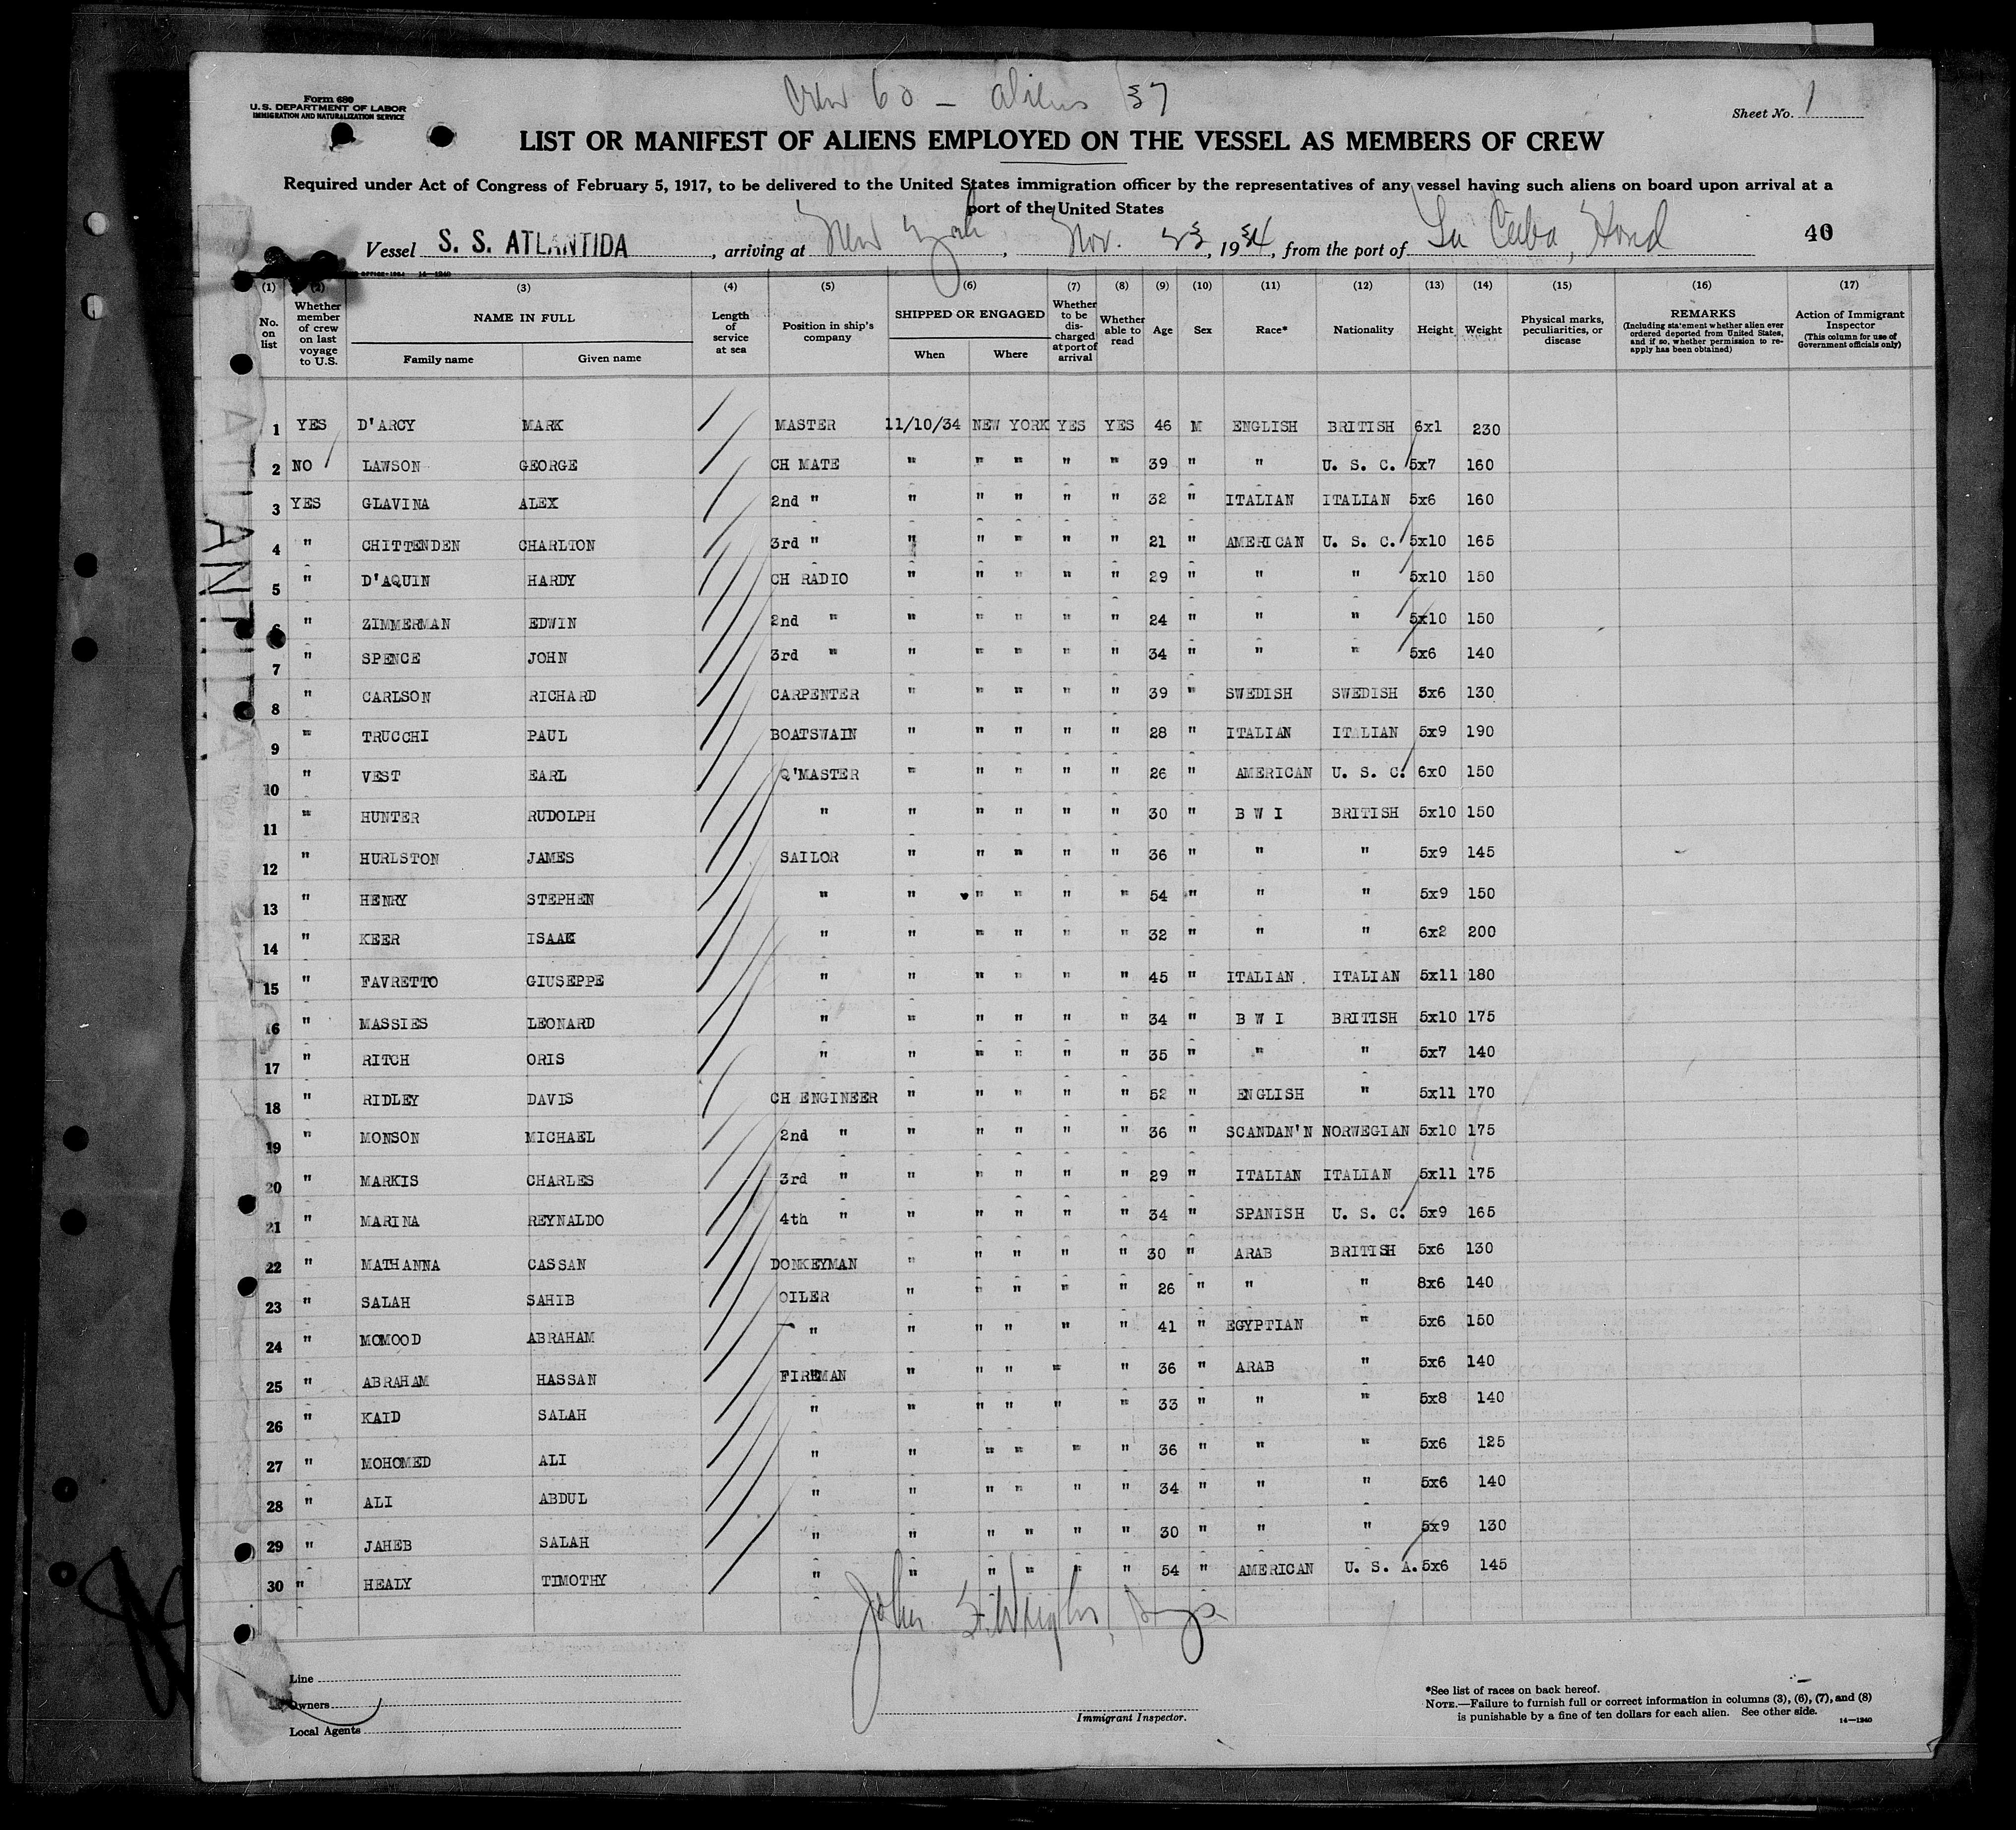 Crew 60 - aliens 37
Form 680
U. S. DEPARTMENT OF LABOR
IMMIGRATION AND NATURALIZATION SERVICE
Sheet No. 1
LIST OR MANIFEST OF ALIENS EMPLOYED ON THE VESSEL AS MEMBERS OF CREW
Required under Act of Congress of February 5, 1917, to be delivered to the United States immigration officer by the representatives of any vessel having such aliens on board upon arrival at a
port of the United States
Vessel S. S. ATLANTIDA, arriving at New York, Nov. 23, 1934, from the port of La Ceiba, Hond 40
(1) (2) (3) (4) (5) (6) (7) (8) (9) (10) (11) (12) (13) (14) (15) (16) (17)
No. on list Whether member of crew on last voyage to U.S. NAME IN FULL Family name Given name Length of service at sea Position in ship's company SHIPPED OR ENGAGED When Where Whether to be discharged at port of arrival Whether able to read Age Sex Race* Nationality Height Weight Physical marks, peculiarities, or disease REMARKS (Including statement whether alien ever ordered deported from United States, and if so, whether permission to reapply has been obtained) Action of Immigrant Inspector (This column for use of Government officials only)
1 YES D'ARCY MARK MASTER 11/10/34 NEW YORK YES YES 46 M ENGLISH BRITISH 6x1 230
2 NO LAWSON GEORGE CH MATE " " " " " 39 " " U. S. C. 5x7 160
3 YES GLAVINA ALEX 2nd " " " " " " 32 " ITALIAN ITALIAN 5x6 160
4 " CHITTENDEN CHARLTON 3rd " " " " " " 21 " AMERICAN U. S. C. 5x10 165
5 " D'AQUIN HARDY CH RADIO " " " " " 29 " " " 5x10 150
6 " ZIMMERMAN EDWIN 2nd " " " " " " 24 " " " 5x10 150
7 " SPENCE JOHN 3rd " " " " " " 34 " " " 5x6 140
8 " CARLSON RICHARD CARPENTER " " " " " 39 " SWEDISH SWEDISH 5x6 130
9 " TRUCCHI PAUL BOATSWAIN " " " " " 28 " ITALIAN ITALIAN 5x9 190
10 " VEST EARL Q'MASTER " " " " " 26 " AMERICAN U. S. C. 6x0 150
11 " HUNTER RUDOLPH " " " " " " 30 " B W I BRITISH 5x10 150
12 " HURLSTON JAMES SAILOR " " " " " 36 " " " 5x9 145
13 " HENRY STEPHEN " " " " " " 54 " " " 5x9 150
14 " KEER ISAAK " " " " " " 32 " " " 6x2 200
15 " FAVRETTO GIUSEPPE " " " " " " 45 " ITALIAN ITALIAN 5x11 180
16 " MASSIES LEONARD " " " " " " 34 " B W I BRITISH 5x10 175
17 " RITCH ORIS " " " " " " 35 " " " 5x7 140
18 " RIDLEY DAVIS CH ENGINEER " " " " " 52 " ENGLISH " 5x11 170
19 " MONSON MICHAEL 2nd " " " " " " 36 " SCANDAN'N NORWEGIAN 5x10 175
20 " MARKIS CHARLES 3rd " " " " " " 29 " ITALIAN ITALIAN 5x11 175
21 " MARINA REYNALDO 4th " " " " " " 34 " SPANISH U. S. C. 5x9 165
22 " MATHANNA CASSAN DONKEYMAN " " " " " 30 " ARAB BRITISH 5x6 130
23 " SALAH SAHIB OILER " " " " " 26 " " " 8x6 140
24 " MOMOOD ABRAHAM " " " " " " 41 " EGYPTIAN " 5x6 150
25 " ABRAHAM HASSAN FIREMAN " " " " " 36 " ARAB " 5x6 140
26 " KAID SALAH " " " " " " 33 " " " 5x8 140
27 " MOHOMED ALI " " " " " " 36 " " " 5x6 125
28 " ALI ABDUL " " " " " " 34 " " " 5x6 140
29 " JAHEB SALAH " " " " " " 30 " " " 5x9 130
30 " HEALY TIMOTHY " " " " " " 54 " AMERICAN U. S. A. 5x6 145
John
Line
Owners
Local Agents
Immigrant Inspector.
*See list of races on back hereof.
NOTE.—Failure to furnish full or correct information in columns (3), (6), (7), and (8)
is punishable by a fine of ten dollars for each alien. See other side.
14—1240
ATLANTIDA